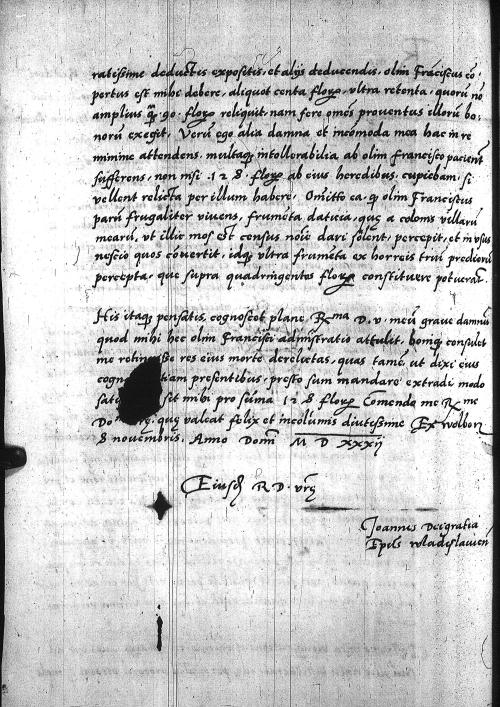 ratissime deductis expositis, et alijs deducendis, olim Frāciscus cō,
pertus est mihi debere, aliquot centa floroꝝ, vltra retenta, quorū nō
amplius q̄ȝ 90 floroꝝ reliquit, nam fere om̄es prouentus illorū bo,
norū exegit, Verū ego alia damna et incōmoda mea hac in re
minime attendens, multaqȝ intollerabilia ab olim Francisco pacienter
sufferens, non nisi 128 floroꝝ ab eius heredibus, cupiebam, si
vellent relicta per illum habere, Omitto ea, q̄ olim Franciscus
parū frugaliter viuens, frumēta datitia, quę a colonis villarū
mearū, vt illic mos est census noīe dari solent, percepit, et in vsus
nescio quos cōuertit, itaqȝ vltra frumēta ex horreis triū predioru
percepta, que supra quadringentos floroꝝ constituere potuerāt.
His itaqȝ pensatis, cognoscet plane Rma D. v. meū graue damnū
quod mihi hec olim Francisci admīstratio attulit, boniqȝ consulet
me res eius morte derelictas, quas tamē, vt dixi eius
presentibus, presto sum mandare extradi modo
sit mihi pro summa 128 floroꝝ Comendo me Rme
quę valeat felix et incolumis diutissime Ex wolborz
8 nouembris. Anno Domī M D XXXij
Eiusdē R D. vrę
Joannes Dei gratia
Ep̄us wladislauien